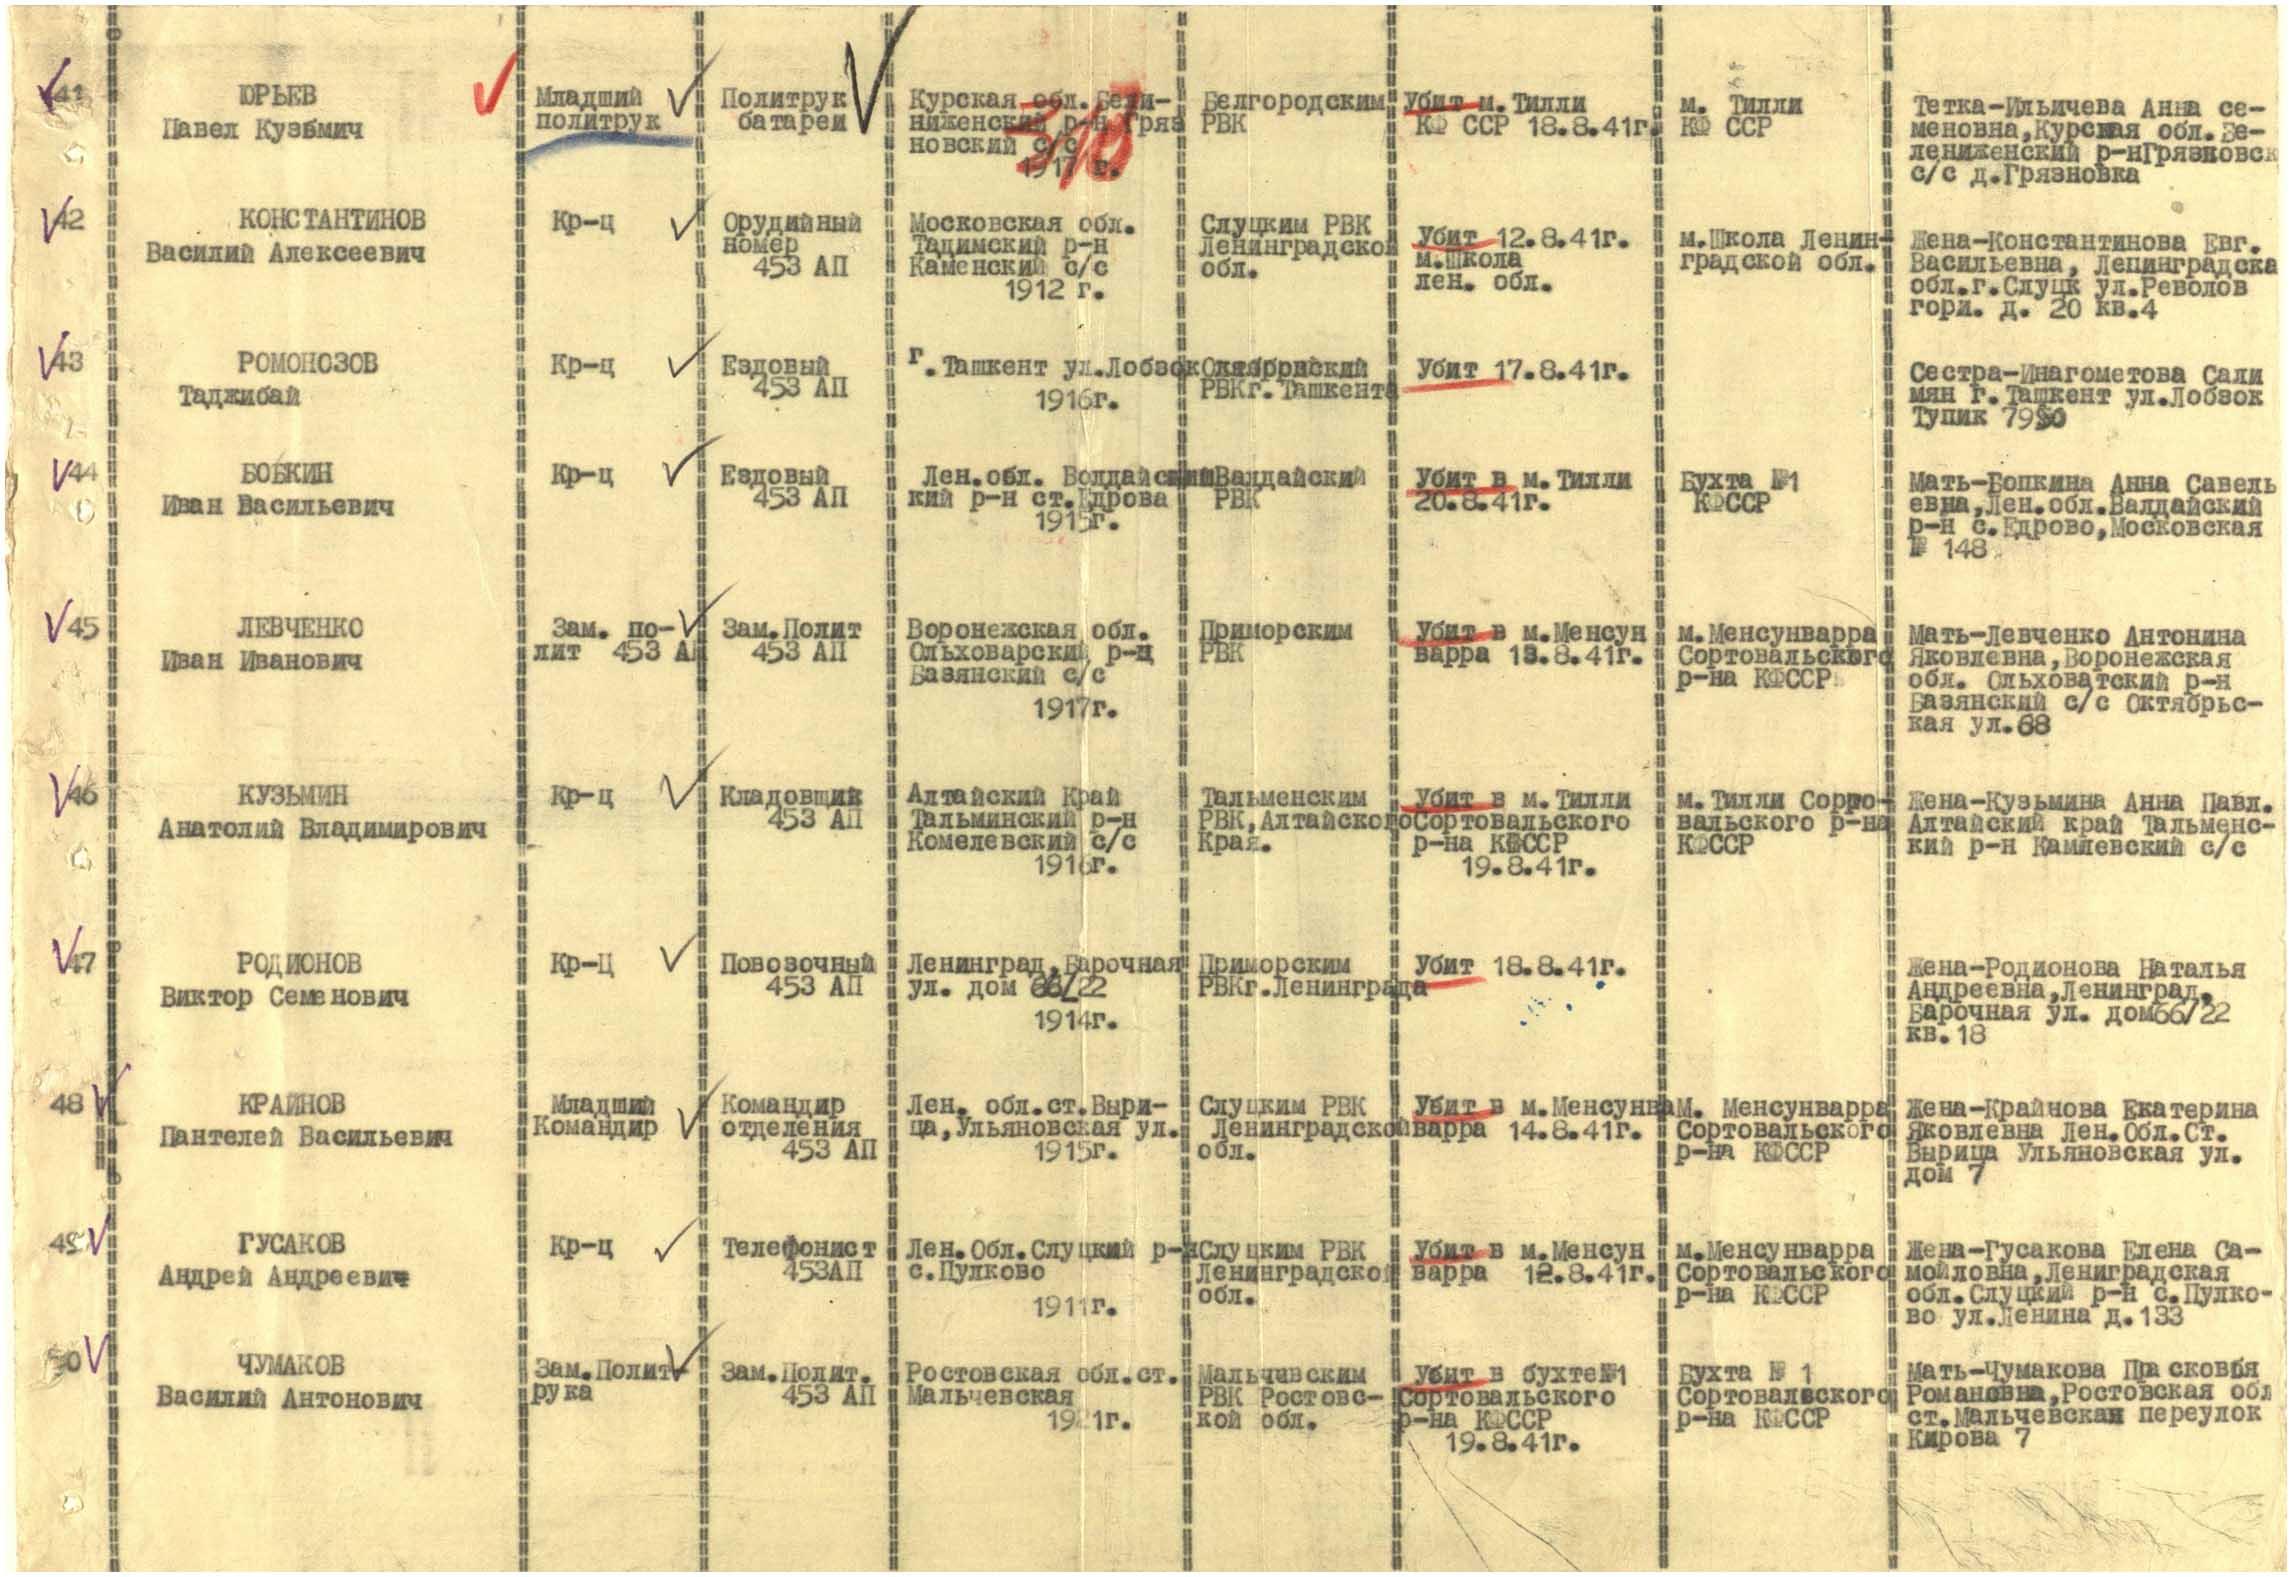 41
ЮРЬЕВ
Павел Кузьмич
Младший
политрук
Политрук
батареи
Курская обл. Бели-
ниженский р-н Гряз
новский с/с
1917 г.
Белгородским
РВК
Убит м. Тилли
КФ ССР 18.8.41г.
м. Тилли
КФ ССР
Тетка-Ильичева Анна се-
меновна,Курская обл. Бе-
лениженский р-нГрязновск
с/с д.Грязновка
42
КОНСТАНТИНОВ
Василий Алексеевич
Кр-ц
Орудийный
номер
453 АП
Московская обл.
Тадимский р-н
Каменский с/с
1912 г.
Слуцким РВК
Ленинградской
обл.
Убит 12.8.41г.
м.Школа
лен. обл.
м.Школа Ленин-
градской обл.
Жена-Константинова Евг.
Васильевна, Ленинградска
обл.г.Слуцк ул.Револов
гори. д. 20 кв.4
43
РОМОНОЗОВ
Таджибай
Кр-ц
Ездовый
453 АП
г.Ташкент ул.Лобзок
1916г.
РВКг.Ташкента
Убит 17.8.41г.
Сестра-Инагометова Сали
мян г.Ташкент ул.Лобзок
Тупик
44
БОБКИН
Иван Васильевич
Кр-ц
Ездовый
453 АП
Лен.обл. Волдайский
кий р-н ст.Едрова
1915г.
Валдайский
РВК
Убит в м.Тилли
20.8.41г.
Бухта №1
КФССР
Мать-Бопкина Анна Савель
евна,Лен.обл.Валдайский
р-н с.Едрово,Московская
№ 148
45
ЛЕВЧЕНКО
Иван Иванович
Зам. по-
лит 453 АП
Зам.Полит
453 АП
Воронежская обл.
Ольховарский р-ц
Базянский с/с
1917г.
Приморским
РВК
Убит в м.Менсун
варра 13.8.41г.
м.Менсунварра
Сортовальского
р-на КФССР
Мать-Левченко Антонина
Яковлевна,Воронежская
обл. Ольховатский р-н
Базянский с/с Октябрьс-
кая ул.68
46
КУЗЬМИН
Анатолий Владимирович
Кр-ц
Кладовщик
453 АП
Алтайский Край
Тальминский р-н
Комелевский с/с
1916г.
Тальменским
РВК,Алтайского
Края.
Убит в м.Тилли
Сортовальского
р-на КФССР
19.8.41г.
м.Тилли Сорто-
вальского р-на
КФССР
Жена-Кузьмина Анна Павл.
Алтайский край Тальменс-
кий р-н Камлевский с/с
47
РОДИОНОВ
Виктор Семенович
Кр-Ц
Повозочный
453 АП
Ленинград,Барочная
ул. дом 66/22
1914г.
Приморским
РВКг.Ленинграда
Убит 18.8.41г.
Жена-Родионова Наталья
Андреевна,Ленинград,
Барочная ул. дом66/22
кв.18
48
КРАЙНОВ
Пантелей Васильевич
Младший
Командир
Командир
отделения
453 АП
Лен. обл.ст.Выри-
ца,Ульяновская ул.
1915г.
Слуцким РВК
Ленинградской
обл.
Убит в м.Менсунва
варра 14.8.41г.
М. Менсунварра
Сортовальского
р-на КФССР
Жена-Крайнова Екатерина
Яковлевна Лен.Обл.Ст.
Вырица Ульяновская ул.
дом 7
49
ГУСАКОВ
Андрей Андреевич
Кр-ц
Телефонист
453АП
Лен.Обл.Слуцкий р-н
с.Пулково
1911г.
Слуцким РВК
Ленинградской
обл.
Убит в м.Менсун
варра 12.8.41г.
м.Менсунварра
Сортовальского
р-на КФССР
Жена-Гусакова Елена Са-
мойловна,Лениградская
обл.Слуцкий р-н с.Пулко-
во ул.Ленина д.133
50
ЧУМАКОВ
Василий Антонович
Зам.Полит-
рука
Зам.Полит.
453 АП
Ростовская обл.ст.
Мальчевская
1921г.
Мальчевским
РВК Ростовс-
кой обл.
Убит в бухте№1
Сортовальского
р-на КФССР
19.8.41г.
Бухта № 1
Сортовальского
р-на КФССР
Мать-Чумакова Прасковья
Романовна,Ростовская обл
ст.Мальчевская переулок
Кирова 7